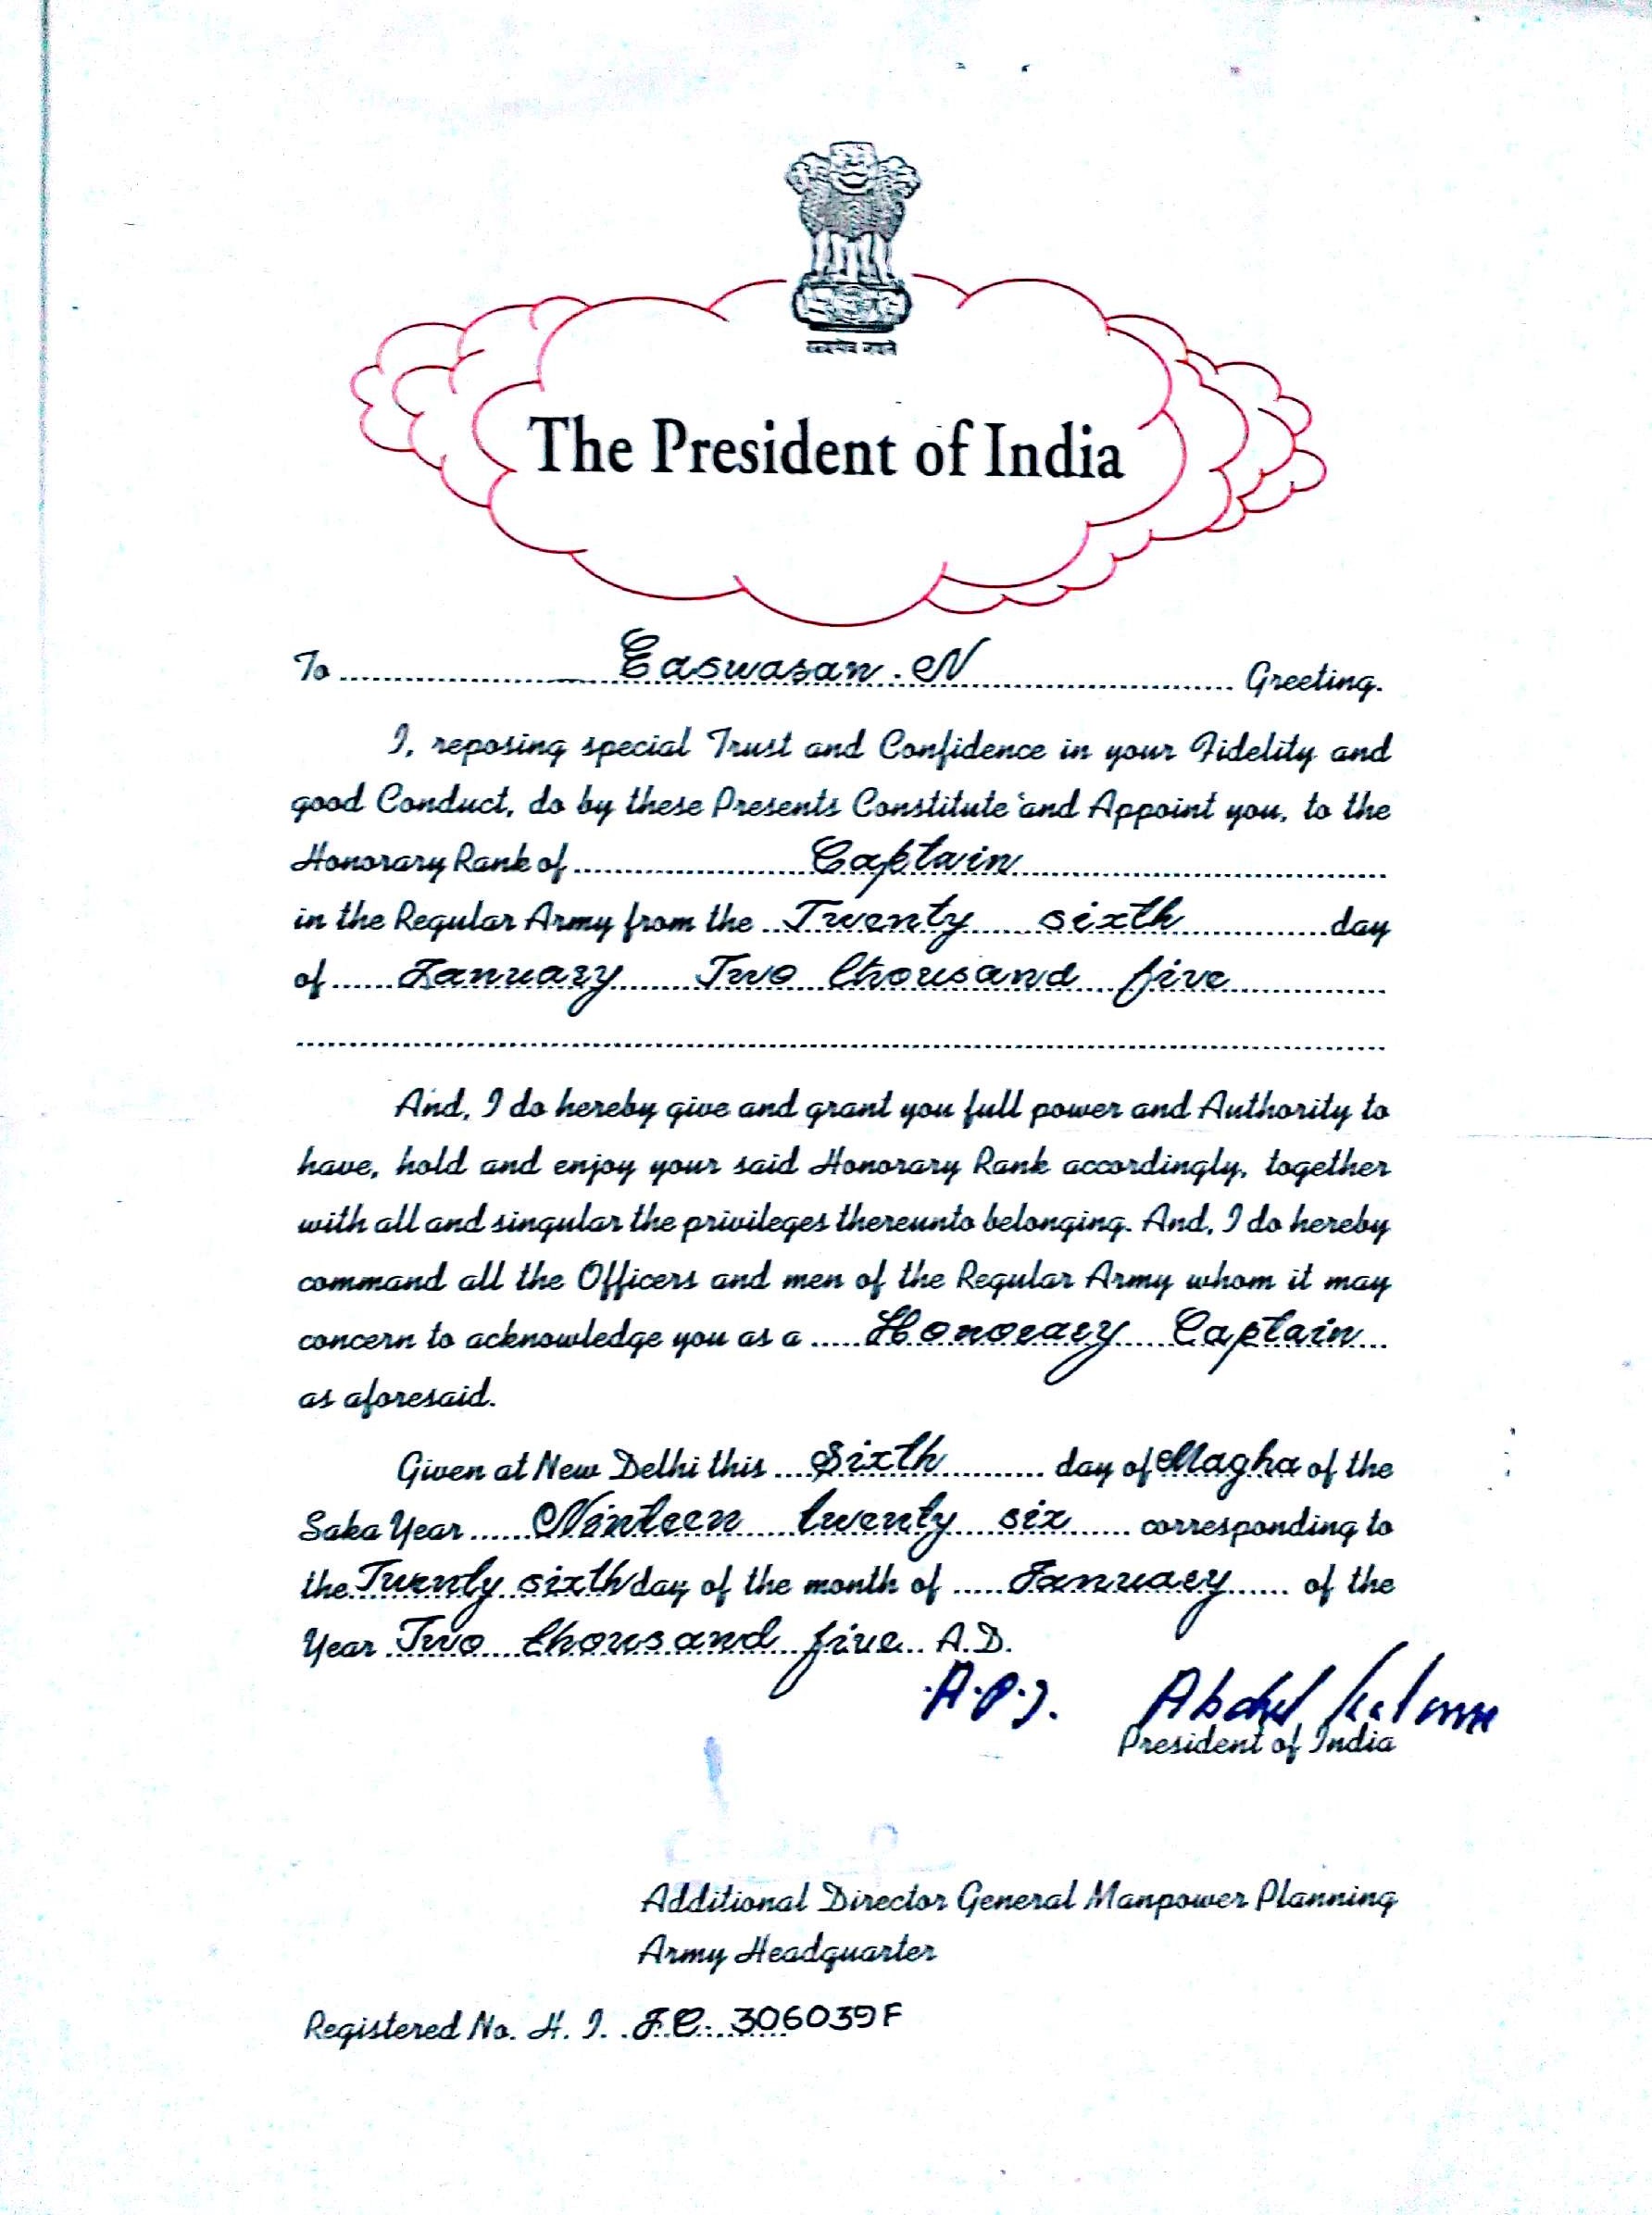 सत्यमेव जयते
The President of India
To Easwaran . N Greeting.
I, reposing special Trust and Confidence in your Fidelity and
good Conduct, do by these Presents Constitute and Appoint you, to the
Honorary Rank of Captain
in the Regular Army from the Twenty sixth day
of January Two thousand five
And, I do hereby give and grant you full power and Authority to
have, hold and enjoy your said Honorary Rank accordingly, together
with all and singular the privileges thereunto belonging. And, I do hereby
command all the Officers and men of the Regular Army whom it may
concern to acknowledge you as a Honorary Captain
as aforesaid.
Given at New Delhi this Sixth day of Magha of the
Saka Year Ninteen twenty six corresponding to
the Twenty sixth day of the month of January of the
Year Two thousand five A.D.
A.P.J. Abdul Kalam
President of India
Additional Director General Manpower Planning
Army Headquarter
Registered No. H. I. J.C. 306039F